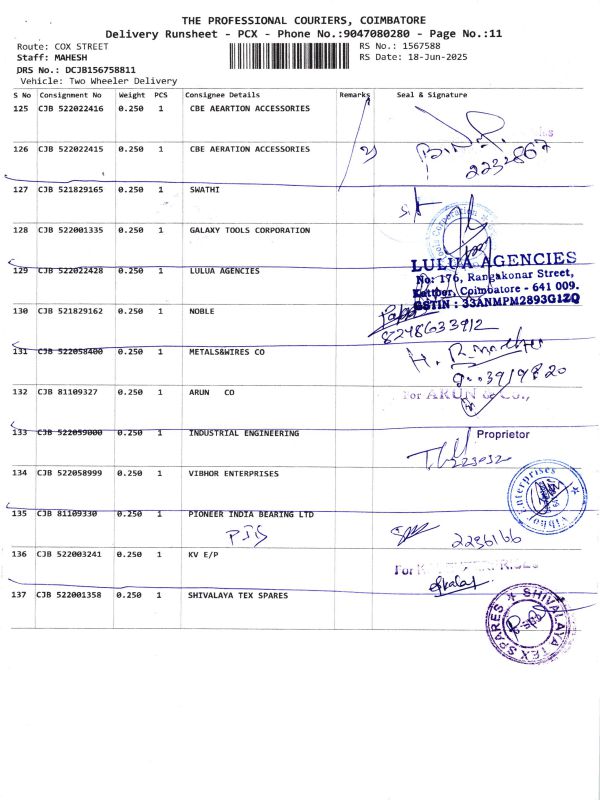 THE PROFESSIONAL COURIERS, COIMBATORE
Delivery Runsheet - PCX - Phone No.:9047080280 - Page No.:11
Route: COX STREET
RS No.: 1567588
Staff: MAHESH
RS Date: 18-Jun-2025
DRS No.: DCJB156758811
Vehicle: Two Wheeler Delivery
S No Consignment No Weight PCS Consignee Details Remarks Seal & Signature
125 CJB 522022416 0.250 1 CBE AEARTION ACCESSORIES
126 CJB 522022415 0.250 1 CBE AERATION ACCESSORIES
2232867
127 CJB 521829165 0.250 1 SWATHI
128 CJB 522001335 0.250 1 GALAXY TOOLS CORPORATION
LULUA AGENCIES
129 CJB 522022428 0.250 1 LULUA AGENCIES
No: 176, Rangakonar Street,
Kattoor, Coimbatore - 641 009.
GSTIN : 33ANMPM2893G1ZQ
130 CJB 521829162 0.250 1 NOBLE
8248633912
131 CJB 522058400 0.250 1 METALS&WIRES CO
132 CJB 81109327 0.250 1 ARUN CO
For ARUN & Co.,
133 CJB 522059000 0.250 1 INDUSTRIAL ENGINEERING
Proprietor
223032
134 CJB 522058999 0.250 1 VIBHOR ENTERPRISES
Vibhor Enterprises
135 CJB 81109330 0.250 1 PIONEER INDIA BEARING LTD
2236166
136 CJB 522003241 0.250 1 KV E/P
For K
137 CJB 522001358 0.250 1 SHIVALAYA TEX SPARES
SHIVALAYA TEX SPARES